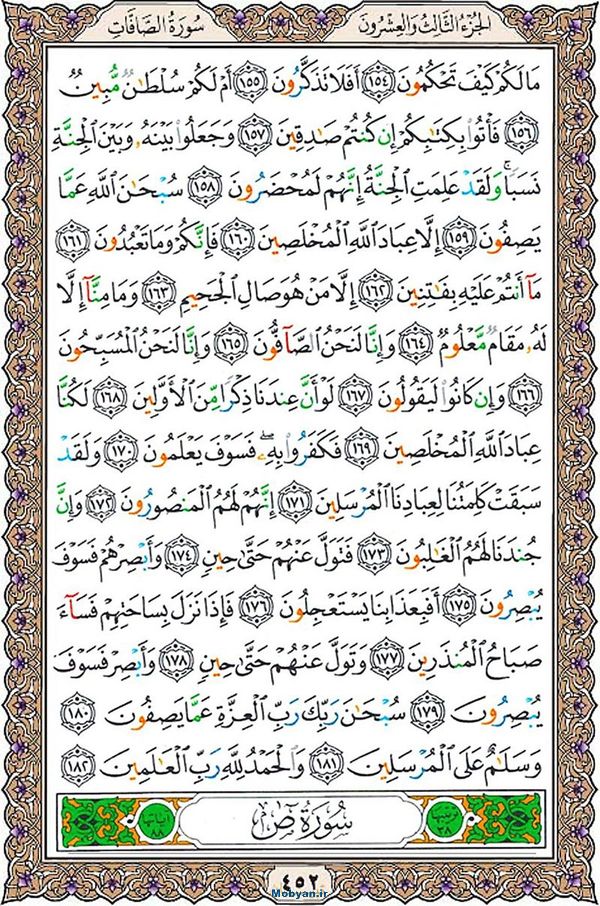 سُورَةُ الصَّافَّاتِ الجُزْءُ الثَّالِثُ وَالعِشْرُونَ
مَا لَكُمْ كَيْفَ تَحْكُمُونَ ١٥٤ أَفَلَا تَذَكَّرُونَ ١٥٥ أَمْ لَكُمْ سُلْطَانٌ مُّبِينٌ
١٥٦ فَأْتُوا بِكِتَابِكُمْ إِن كُنتُمْ صَادِقِينَ ١٥٧ وَجَعَلُوا بَيْنَهُ وَبَيْنَ الْجِنَّةِ
نَسَبًا ۚ وَلَقَدْ عَلِمَتِ الْجِنَّةُ إِنَّهُمْ لَمُحْضَرُونَ ١٥٨ سُبْحَانَ اللَّهِ عَمَّا
يَصِفُونَ ١٥٩ إِلَّا عِبَادَ اللَّهِ الْمُخْلَصِينَ ١٦٠ فَإِنَّكُمْ وَمَا تَعْبُدُونَ ١٦١
مَا أَنتُمْ عَلَيْهِ بِفَاتِنِينَ ١٦٢ إِلَّا مَنْ هُوَ صَالِ الْجَحِيمِ ١٦٣ وَمَا مِنَّا إِلَّا
لَهُ مَقَامٌ مَّعْلُومٌ ١٦٤ وَإِنَّا لَنَحْنُ الصَّافُّونَ ١٦٥ وَإِنَّا لَنَحْنُ الْمُسَبِّحُونَ
١٦٦ وَإِن كَانُوا لَيَقُولُونَ ١٦٧ لَوْ أَنَّ عِندَنَا ذِكْرًا مِّنَ الْأَوَّلِينَ ١٦٨ لَكُنَّا
عِبَادَ اللَّهِ الْمُخْلَصِينَ ١٦٩ فَكَفَرُوا بِهِ ۖ فَسَوْفَ يَعْلَمُونَ ١٧٠ وَلَقَدْ
سَبَقَتْ كَلِمَتُنَا لِعِبَادِنَا الْمُرْسَلِينَ ١٧١ إِنَّهُمْ لَهُمُ الْمَنصُورُونَ ١٧٢ وَإِنَّ
جُندَنَا لَهُمُ الْغَالِبُونَ ١٧٣ فَتَوَلَّ عَنْهُمْ حَتَّىٰ حِينٍ ١٧٤ وَأَبْصِرْهُمْ فَسَوْفَ
يُبْصِرُونَ ١٧٥ أَفَبِعَذَابِنَا يَسْتَعْجِلُونَ ١٧٦ فَإِذَا نَزَلَ بِسَاحَتِهِمْ فَسَاءَ
صَبَاحُ الْمُنذَرِينَ ١٧٧ وَتَوَلَّ عَنْهُمْ حَتَّىٰ حِينٍ ١٧٨ وَأَبْصِرْ فَسَوْفَ
يُبْصِرُونَ ١٧٩ سُبْحَانَ رَبِّكَ رَبِّ الْعِزَّةِ عَمَّا يَصِفُونَ ١٨٠
وَسَلَامٌ عَلَى الْمُرْسَلِينَ ١٨١ وَالْحَمْدُ لِلَّهِ رَبِّ الْعَالَمِينَ ١٨٢
ترتيبها ٣٨ سُورَةُ صٓ آياتها ٨٨
٤٥٢
Mobyan.ir